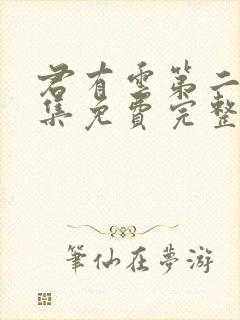 君有雲第二
集免費完整
筆仙在夢游